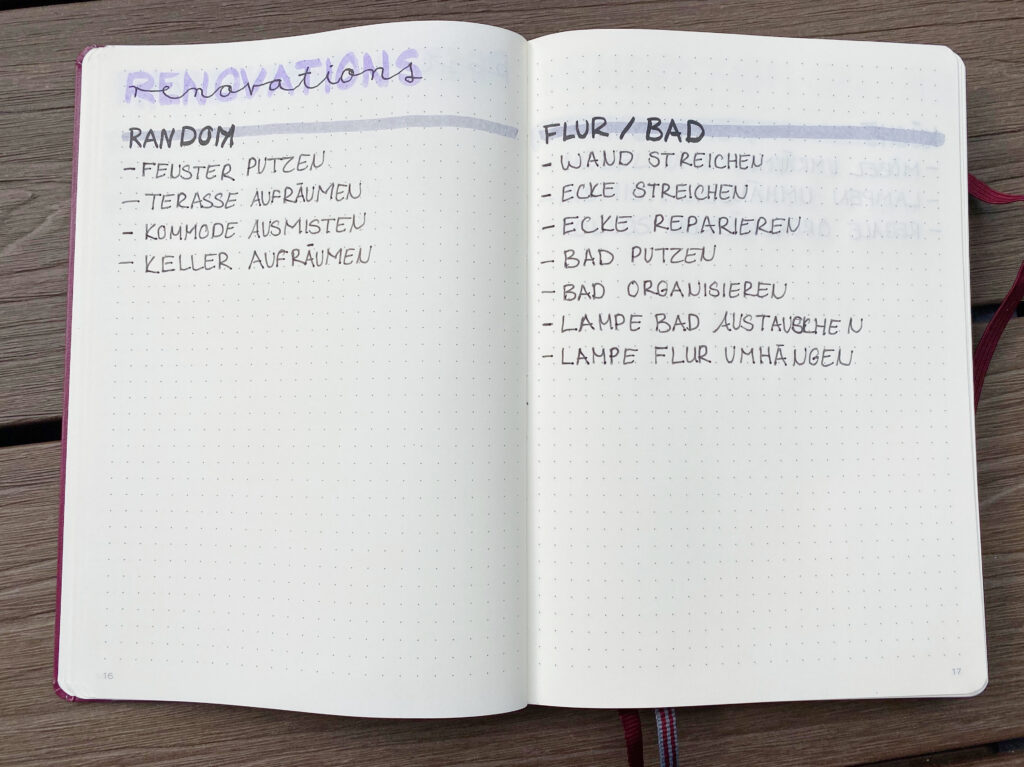 RENOVATIONS
renovations
RANDOM
- FENSTER PUTZEN
- TERASSE AUFRÄUMEN
- KOMMODE AUSMISTEN
- KELLER AUFRÄUMEN
16
FLUR / BAD
- WAND STREICHEN
- ECKE STREICHEN
- ECKE REPARIEREN
- BAD PUTZEN
- BAD ORGANISIEREN
- LAMPE BAD AUSTAUSCHEN
- LAMPE FLUR UMHÄNGEN
17